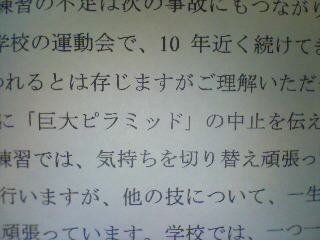 練習の不足は次の事故にもつながり
学校の運動会で、10 年近く続けてき
われるとは存じますがご理解いただ
に「巨大ピラミッド」の中止を伝え
練習では、気持ちを切り替え頑張っ
行いますが、他の技について、一生
頑張っています。学校では、一つ一